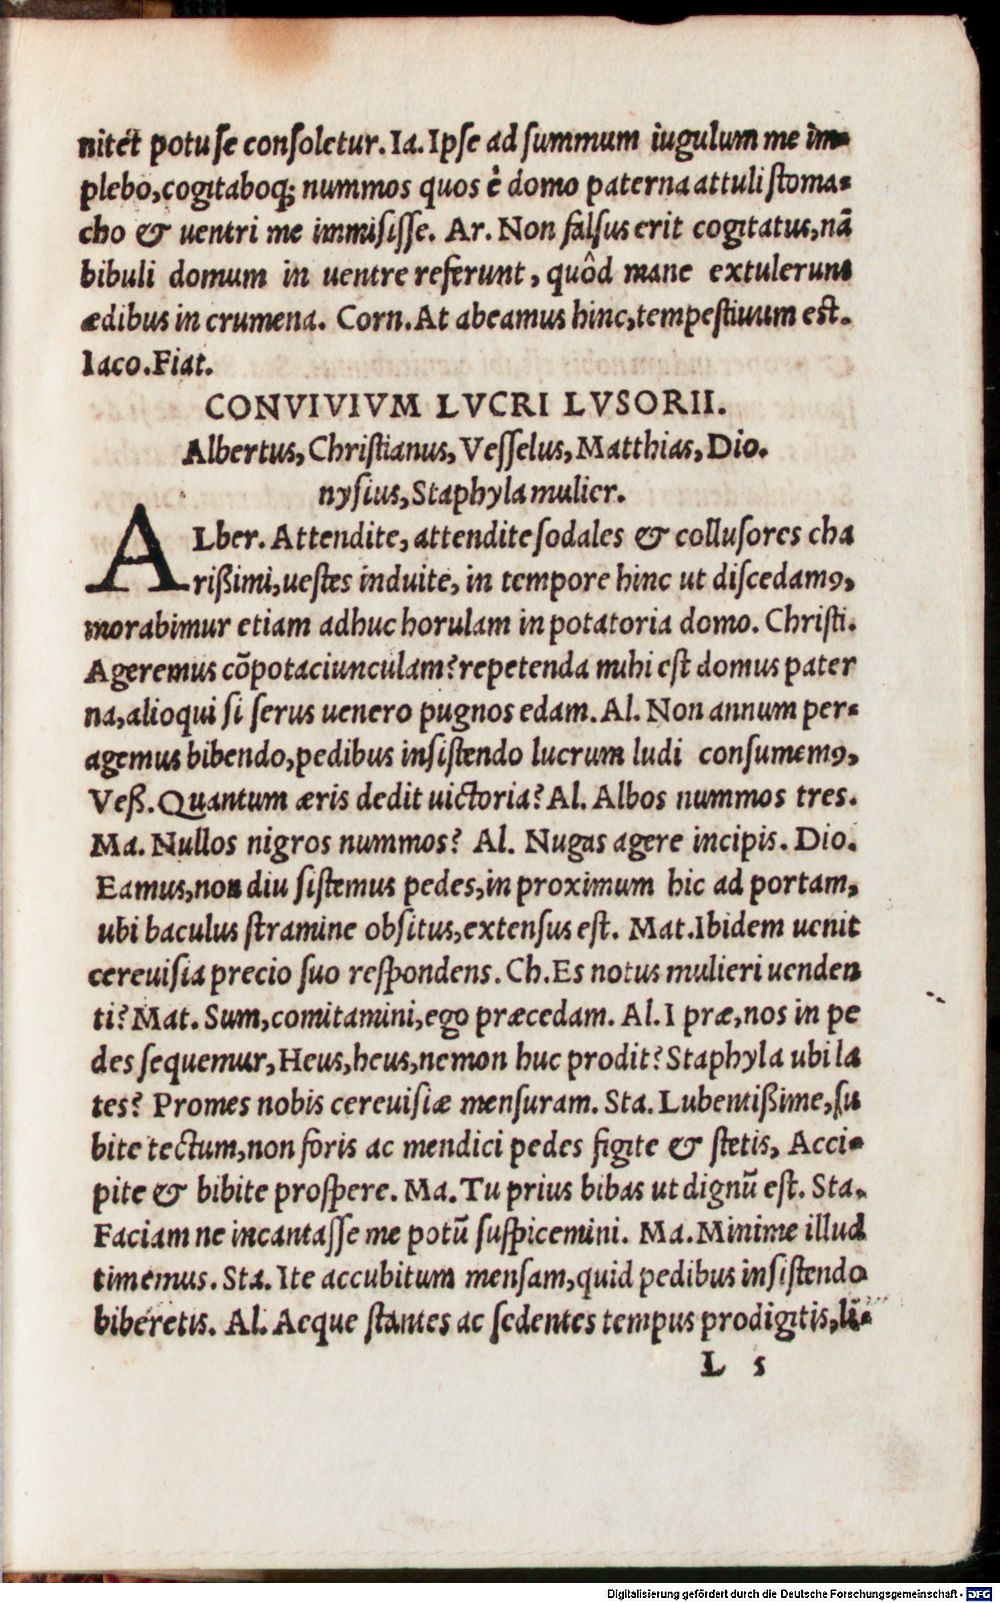 nitét potu ſe conſoletur. Ia. Ipſe ad ſummum iugulum me im-
plebo, cogitaboq; nummos quos è domo paterna attuli ſtoma-
cho & uentri me immiſiſſe. Ar. Non falſus erit cogitatus, nã
bibuli domum in uentre referunt, quôd mane extulerunt
ædibus in crumena. Corn. At abeamus hinc, tempeſtiuum est.
Iaco. Fiat.
CONVIVIVM LVCRI LVSORII.
Albertus, Chriſtianus, Veſſelus, Matthias, Dio.
nyſius, Staphyla mulier.
ALber. Attendite, attendite ſodales & colluſores cha
rißimi, ueſtes induite, in tempore hinc ut diſcedamꝰ,
morabimur etiam adhuc horulam in potatoria domo. Chriſti.
Ageremus cõpotaciunculam? repetenda mihi eſt domus pater
na, alioqui ſi ſerus uenero pugnos edam. Al. Non annum per-
agemus bibendo, pedibus inſiſtendo lucrum ludi conſumemꝰ,
Veß. Quantum æris dedit uictoria? Al. Albos nummos tres.
Ma. Nullos nigros nummos? Al. Nugas agere incipis. Dio.
Eamus, non diu ſiſtemus pedes, in proximum hic ad portam,
ubi baculus ſtramine obſitus, extenſus eſt. Mat. Ibidem uenit
cereuiſia precio ſuo reſpondens. Ch. Es notus mulieri uenden
ti? Mat. Sum, comitamini, ego præcedam. Al. I præ, nos in pe
des ſequemur, Heus, heus, nemon huc prodit? Staphyla ubi la
tes? Promes nobis cereuiſiæ menſuram. Sta. Lubentißime, ſu
bite tectum, non foris ac mendici pedes figite & ſtetis, Acci-
pite & bibite proſpere. Ma. Tu prius bibas ut dignũ eſt. Sta.
Faciam ne incantaſſe me potũ ſuſpicemini. Ma. Minime illud
timemus. Sta. Ite accubitum menſam, quid pedibus inſiſtendo
biberetis. Al. Aeque ſtantes ac ſedentes tempus prodigitis, li-
L 5
Digitalisierung gefördert durch die Deutsche Forschungsgemeinschaft - DFG